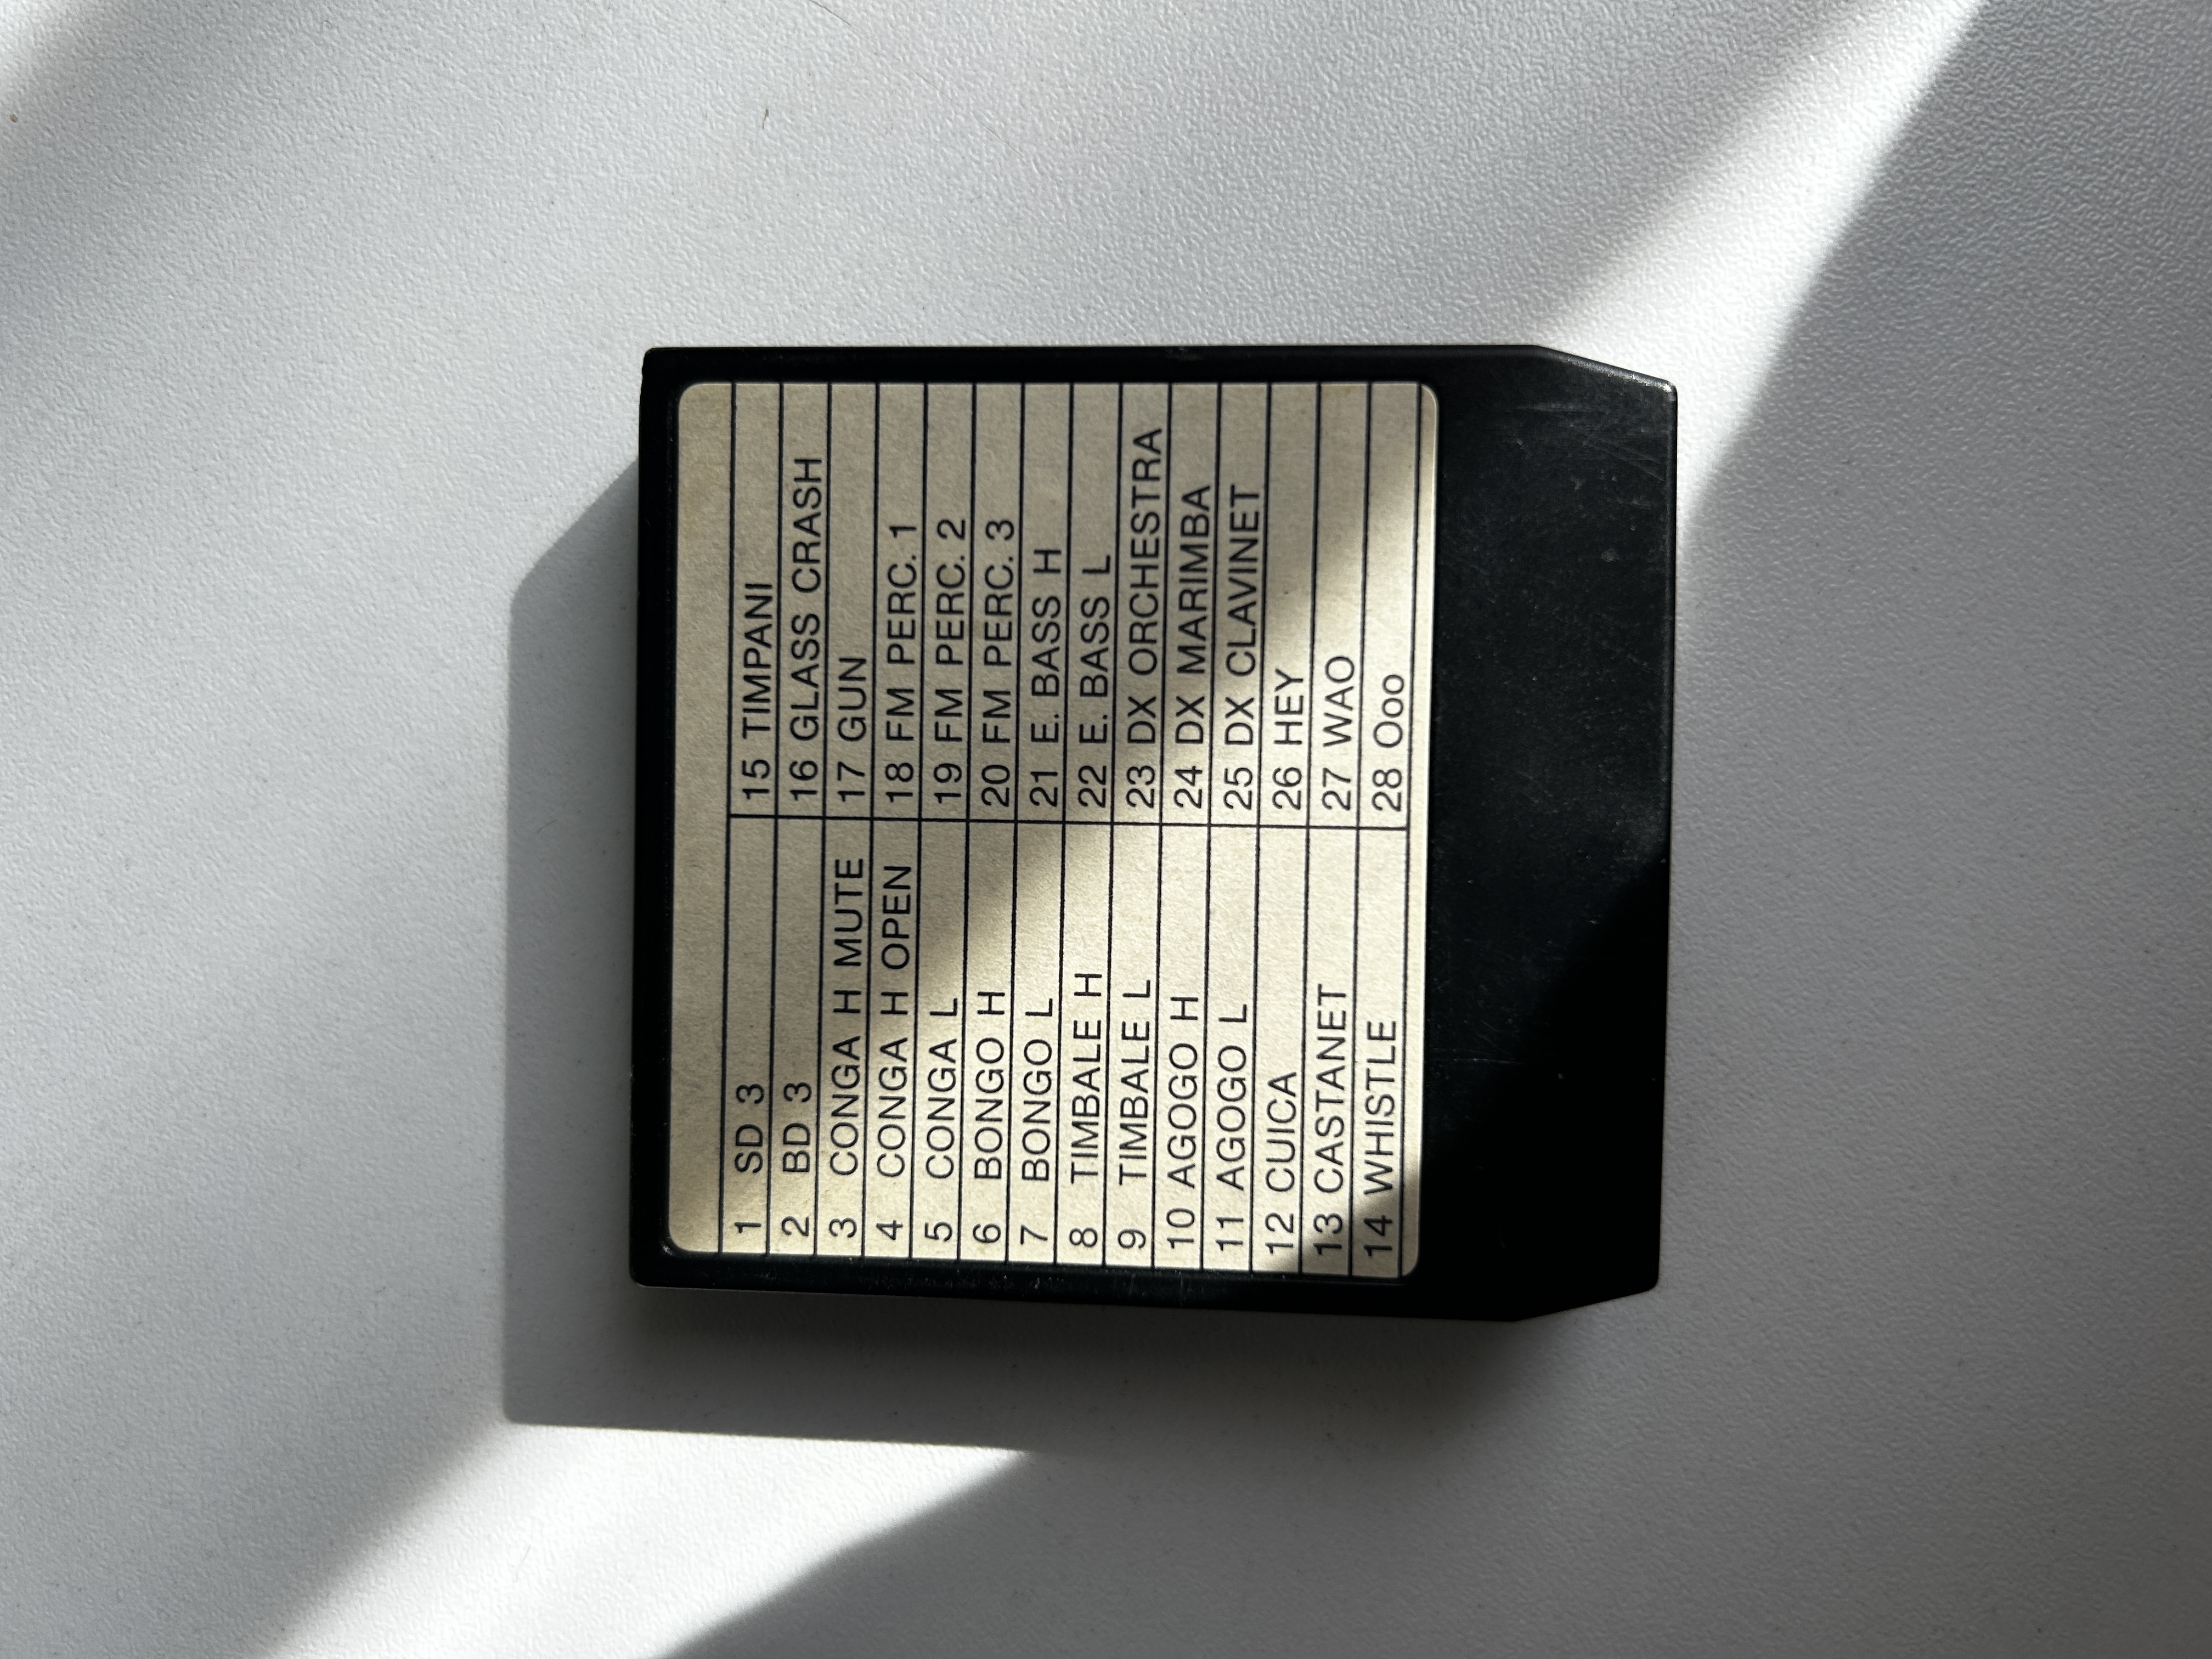 1 SD 3
2 BD 3
3 CONGA H MUTE
4 CONGA H OPEN
5 CONGA L
6 BONGO H
7 BONGO L
8 TIMBALE H
9 TIMBALE L
10 AGOGO H
11 AGOGO L
12 CUICA
13 CASTANET
14 WHISTLE
15 TIMPANI
16 GLASS CRASH
17 GUN
18 FM PERC. 1
19 FM PERC. 2
20 FM PERC. 3
21 E. BASS H
22 E. BASS L
23 DX ORCHESTRA
24 DX MARIMBA
25 DX CLAVINET
26 HEY
27 WAO
28 Ooo